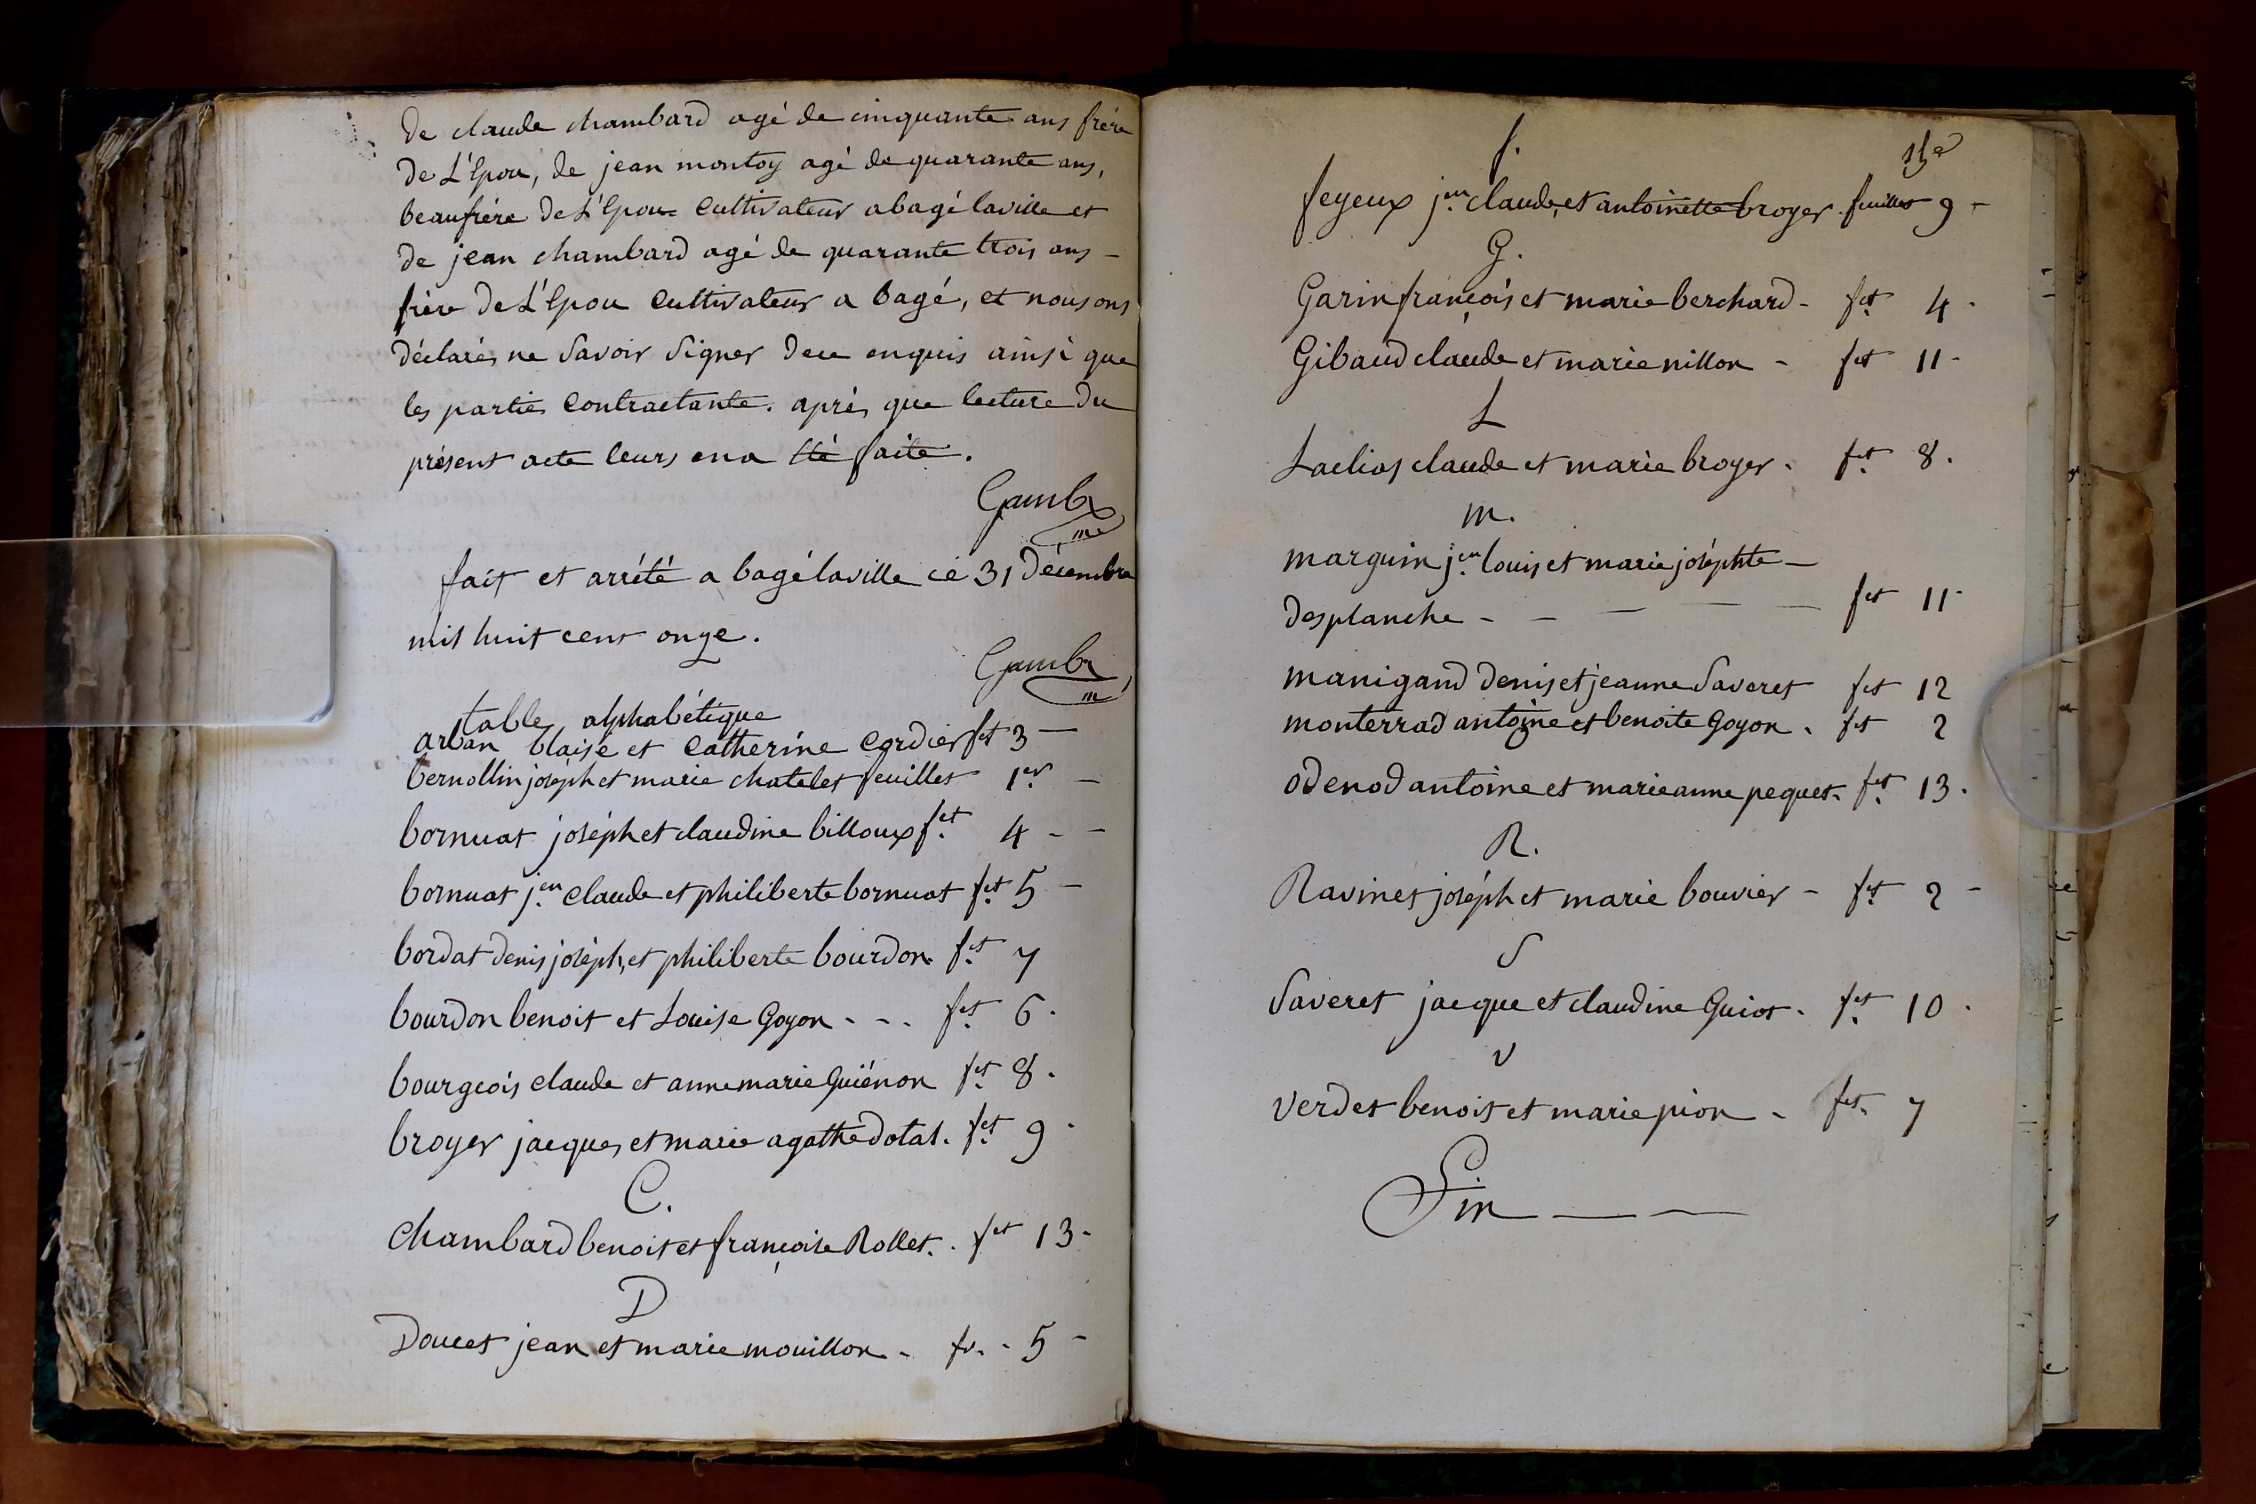 de claude chambard agé de cinquante ans frére
de L'Epou, de jean montoy agé de quarante ans,
beaufrére de L'Epou cultivateur a bagé laville et
de jean chambard agé de quarante trois ans -
frére de L'Epou cultivateur a bagé, et nous ons
déclarés ne savoir signer de ce enquis ainsi que
les parties contractante. après que lecture du
présent acte leurs en a été faite.
Gamby
me
fait et arrété a bagé laville ce 31 décembre
mil huit cent onze.
Gamby
m
table alphabétique
arban blaise et catherine cordier fet 3 -
bernollin joséph et marie chatelet feuillet 1er -
bornuat joséph et claudine billoux fet 4 - -
bornuat jean claude et philiberte bornuat fet 5 -
bordat denis joséph, et philiberte bourdon fet 7
bourdon benoit et Louise Goyon - - - fet 6.
bourgeois claude et anne marie Guiénon fet 8.
broyer jacques et marie agathe dotal. fet 9.
C.
chambard benoit et françoise Rollet. . fet 13-
D
Doucet jean et marie mouillon - fe. - 5 -
f.
feyeux jean claude et antoinette broyer feuillet 9 -
G.
Garin françois et marie berchard - fet 4 -
Gibaud claude et marie nillon - fet 11 -
L
Laclias claude et marie broyer. fet 8.
m.
marguin jean louis et marie joséphte -
desplanche - - - - - fet 11 -
manigand denis et jeanne Saveret fet 12
monterrad antoine et benoite Goyon. fet 2
odenod antoine et marie anne pequet. fet 13.
R.
Ravinet joséph et marie bouvier - fet 2 -
S
Saveret jacque et claudine Guiot. fet 10.
V
verdet benoit et marie pion - fet. 7
Fin - -